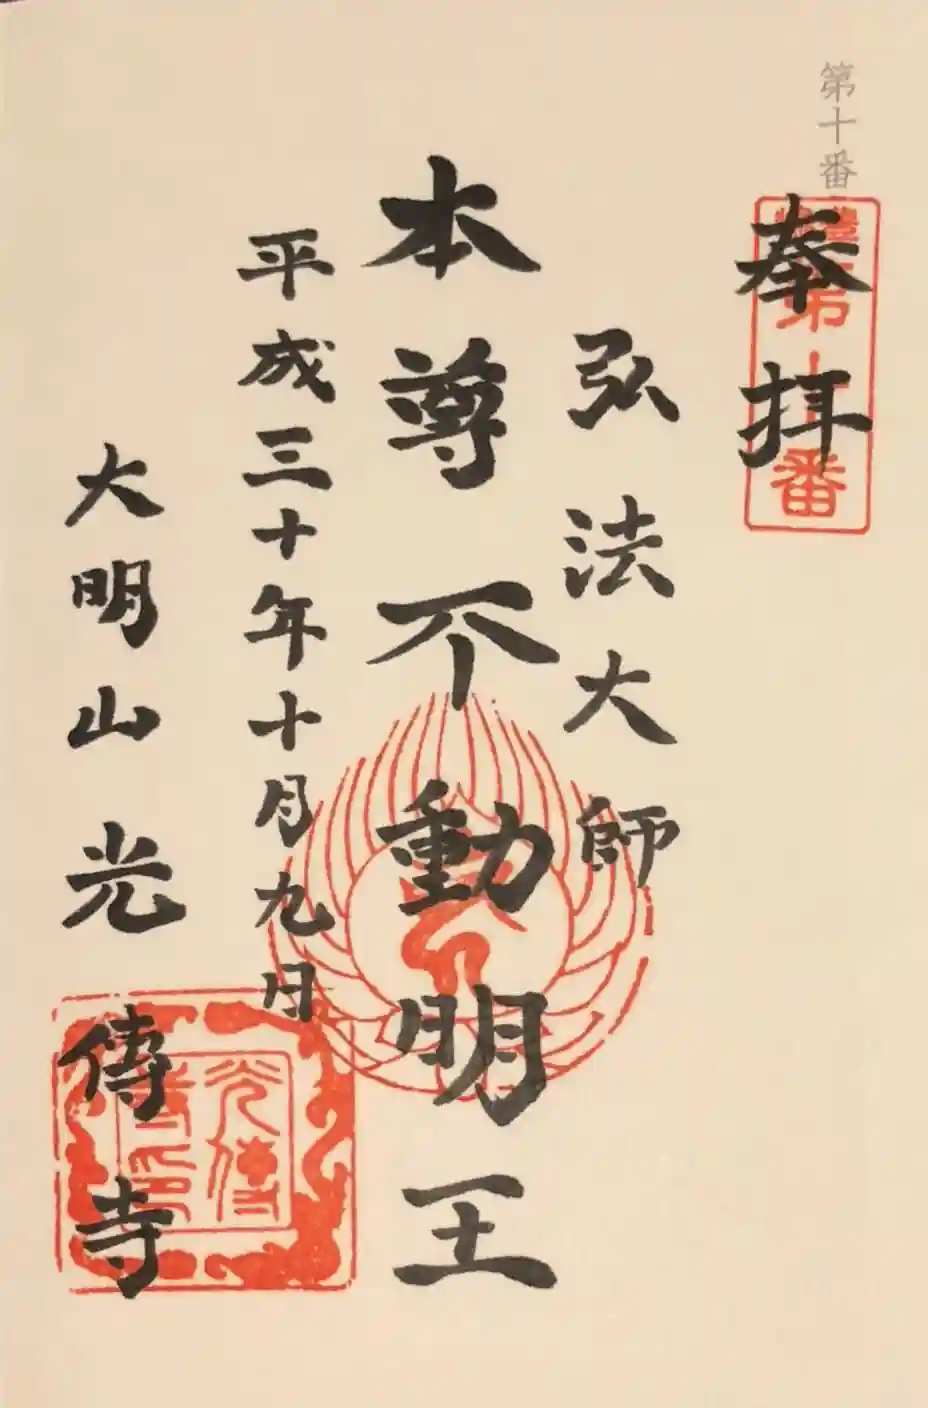 第十番
奉拝
弘法大師
本尊不動明王
平成三十年十月九日
大明山光傳寺
第十番
光傳